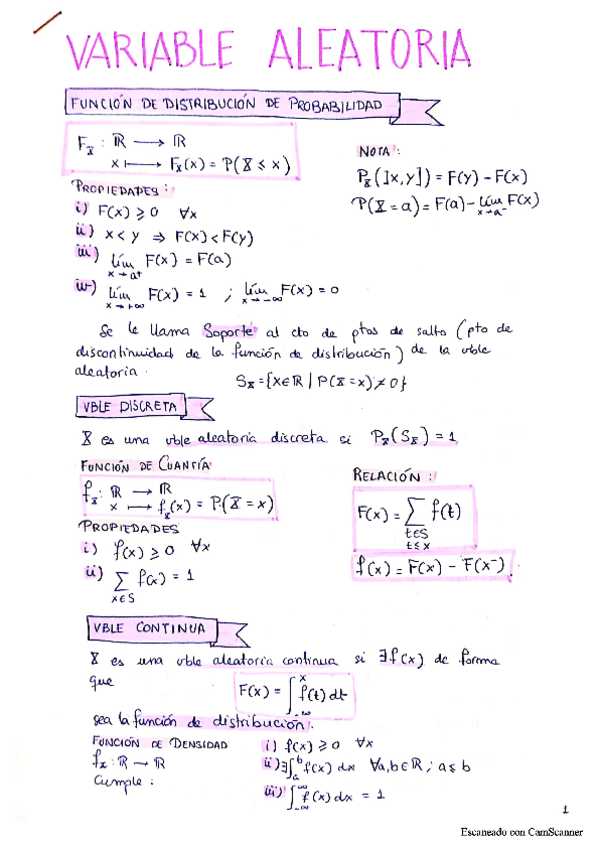 VARIABLE ALEATORIA
FUNCIÓN DE DISTRIBUCIÓN DE PROBABILIDAD
F_X : ℝ ⟶ ℝ
x ⟼ F_X(x) = P(X ≤ x)
NOTA :
P_X(]x,y]) = F(y) - F(x)
P(X = a) = F(a) - lím_{x→a⁻} F(x)
PROPIEDADES :
i) F(x) ≥ 0 ∀x
ii) x < y ⇒ F(x) < F(y)
iii) lím_{x→a⁺} F(x) = F(a)
iv) lím_{x→+∞} F(x) = 1 ; lím_{x→-∞} F(x) = 0
Se le llama Soporte al cto de ptos de salto (pto de
discontinuidad de la función de distribución) de la vble
aleatoria.
S_X = {x∈ℝ | P(X = x) ≠ 0}
VBLE DISCRETA
X es una vble aleatoria discreta si P_X(S_X) = 1
FUNCIÓN DE CUANTÍA
f_X : ℝ ⟶ ℝ
x ⟼ f_X(x) = P(X = x)
RELACIÓN :
F(x) = ∑_{t∈S t≤x} f(t)
f(x) = F(x) - F(x⁻)
PROPIEDADES
i) f(x) ≥ 0 ∀x
ii) ∑_{x∈S} f(x) = 1
VBLE CONTINUA
X es una vble aleatoria continua si ∃f(x) de forma
que F(x) = ∫_{-∞}^{x} f(t) dt
sea la función de distribución.
FUNCIÓN DE DENSIDAD
f_X : ℝ ⟶ ℝ
Cumple :
i) f(x) ≥ 0 ∀x
ii) ∃∫_a^b f(x) dx ∀a,b∈ℝ ; a ≤ b
iii) ∫_{-∞}^{∞} f(x) dx = 1
1
Escaneado con CamScanner